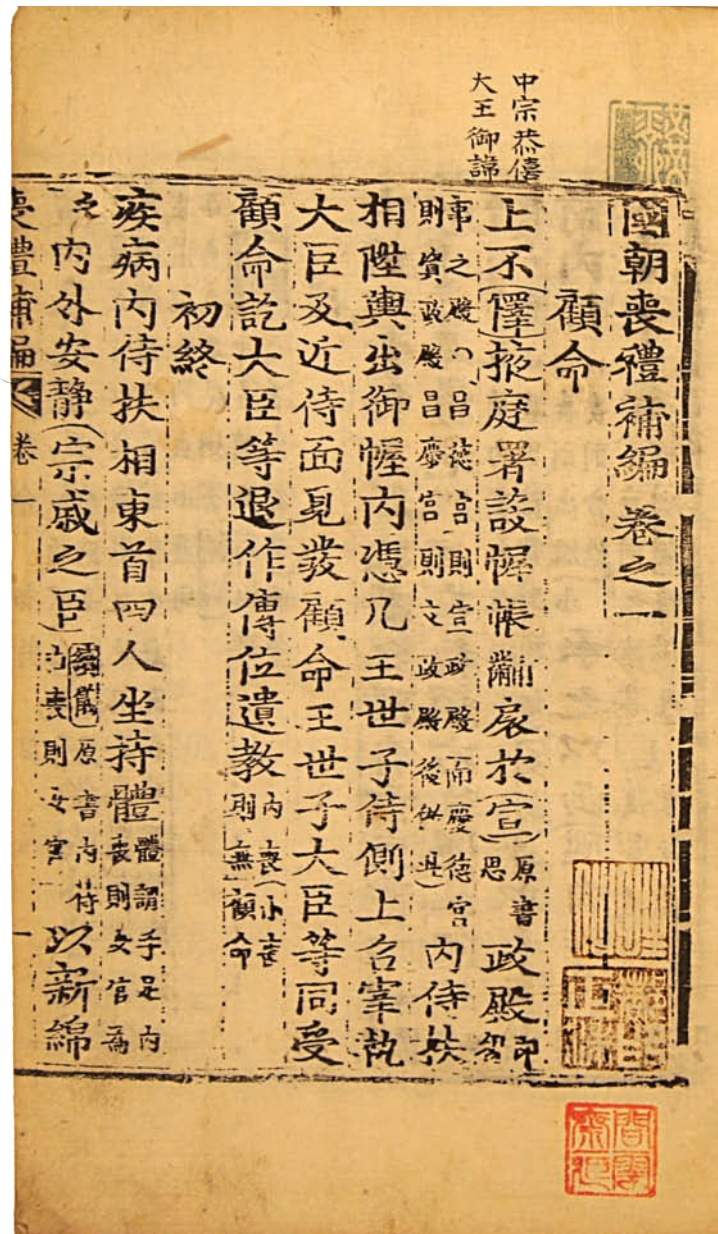 中宗恭僖
大王御諱
國朝喪禮補編 卷之一
顧命
上不(懌)掖庭署設幄帳黼扆於(宣)原書思政殿卽
事之殿○昌德宮則宣政殿而慶德宮則資政殿昌慶宮則文政殿後 內侍扶
相陞輿出御幄內憑几王世子侍側上召宰執
大臣及近侍面見發顧命王世子大臣等同受
顧命訖大臣等退作傳位遺敎內喪(小喪則(無)顧命
初終
疾病內侍扶相東首四人坐持體體謂手足內喪則女官爲
之 內外安靜(宗戚之臣)原書內侍喪則女官 以新綿
喪禮補編 卷一 一